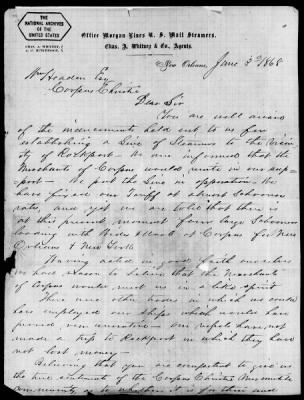 THE
NATIONAL ARCHIVES
OF THE
UNITED STATES
Office Morgan Lines U. S. Mail Steamers.
Chas. A. Whitney & Co., Agents.
CHAS. A. WHITNEY,
New Orleans, June 3d 1868
Wm Headen Esq
Corpus Christi
Dear Sir
You are well aware
of the inducements held out to us for
establishing a Line of Steamers to the vicinity
of Rockport - We were informed that the
Merchants of Corpus would unite in our support
- We put the Line in operation - We
have fixed our Tariff at almost Schooner
rates, and yet we are told that there is
at this present moment four large Schooners
loading with Hides & Wool at Corpus for New
Orleans & New York
Having acted in good faith ourselves
we have reason to believe that the Merchants
of Corpus would meet us in a like spirit
There were other trades in which we could
have employed our ships which would have
proved remunerative - our vessels have not
made a trip to Rockport in which they have
not lost money -
Believing that you are competent to give us
the true sentiments of the Corpus Christi Mercantile
community, as to whether it is for their and